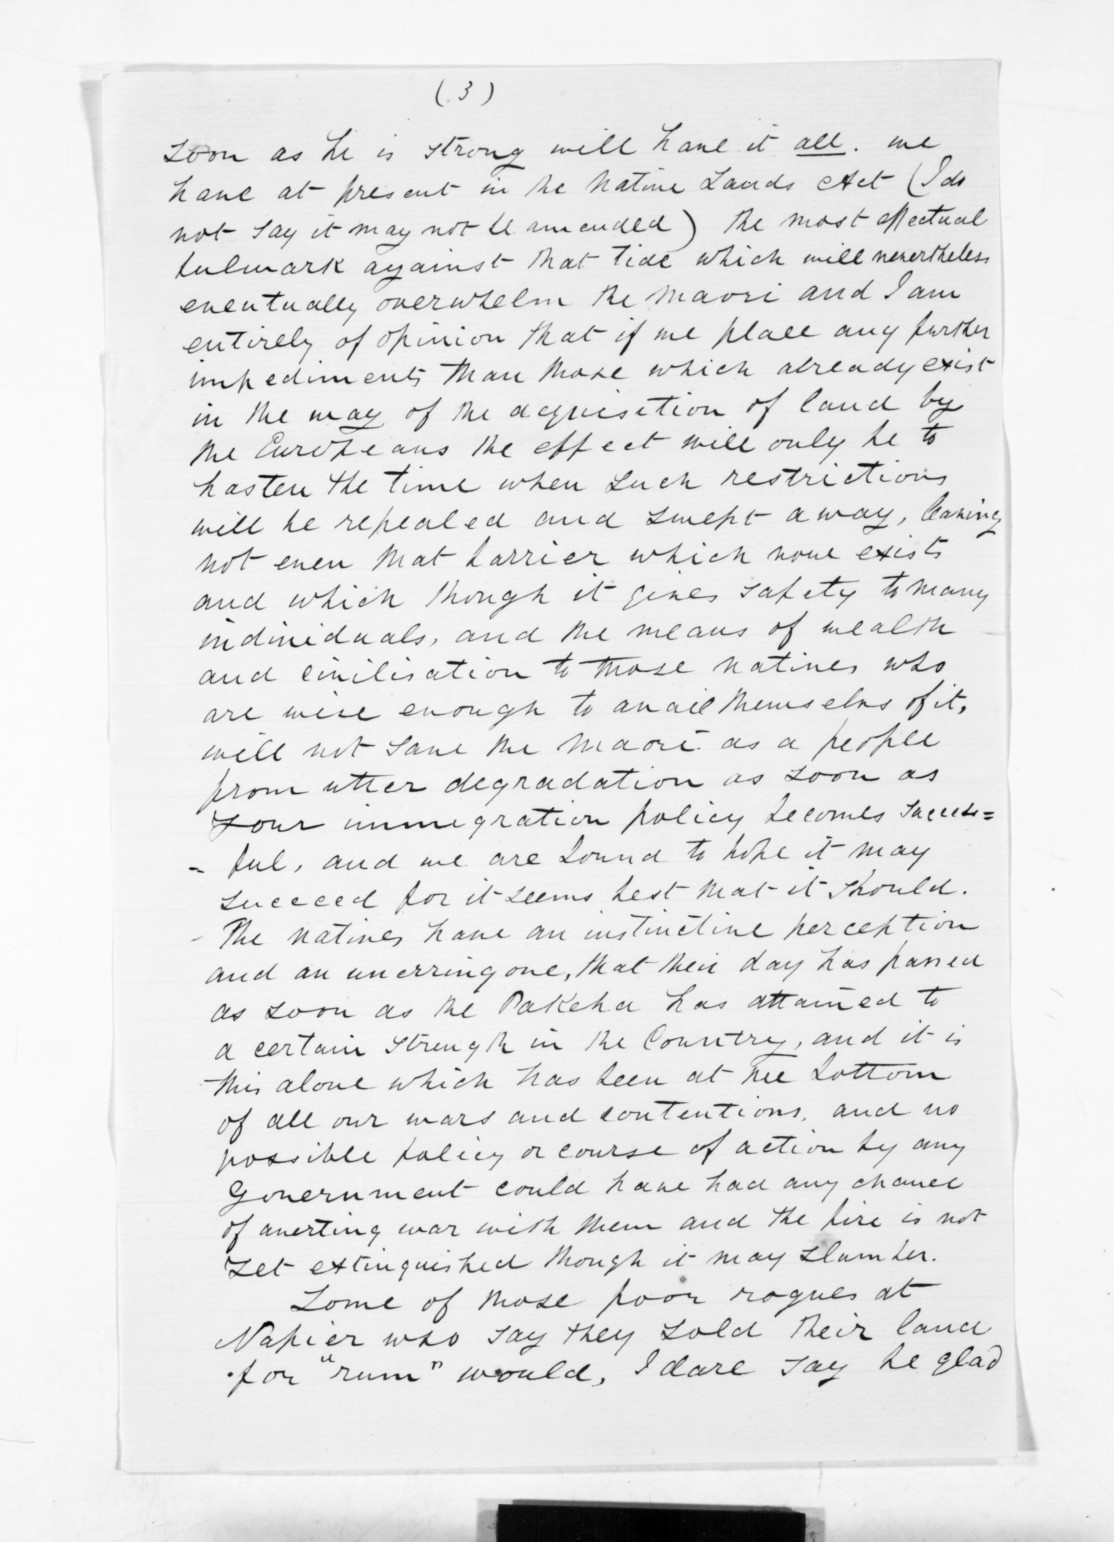 (3)
soon as he is strong will have it all. we
have at present in the Native Lands Act (I do
not say it may not be amended) the most effectual
bulwark against that tide which will nevertheless
eventually overwhelm the Maori and I am
entirely of opinion that if we place any further
impediments than those which already exist
in the way of the acquisition of land by
the Europeans the effect will only be to
hasten the time when such restrictions
will be repealed and swept away, leaving
not even that barrier which now exists
and which though it gives safety to many
individuals, and the means of wealth
and civilisation to those natives who
are wise enough to avail themselves of it,
will not save the Maori as a people
from utter degradation as soon as
your immigration policy becomes success=
= ful, and we are bound to hope it may
succeed for it seems best that it should.
- The natives have an instinctive perception
and an unerring one, that their day has passed
as soon as the Pakeha has attained to
a certain strength in the Country, and it is
this alone which has been at the bottom
of all our wars and contentions, and no
possible policy or course of action by any
Government could have had any chance
of averting war with them and the fire is not
yet extinguished though it may slumber.
Some of those poor rogues at
Napier who say they sold their land
for "rum" would, I dare say be glad